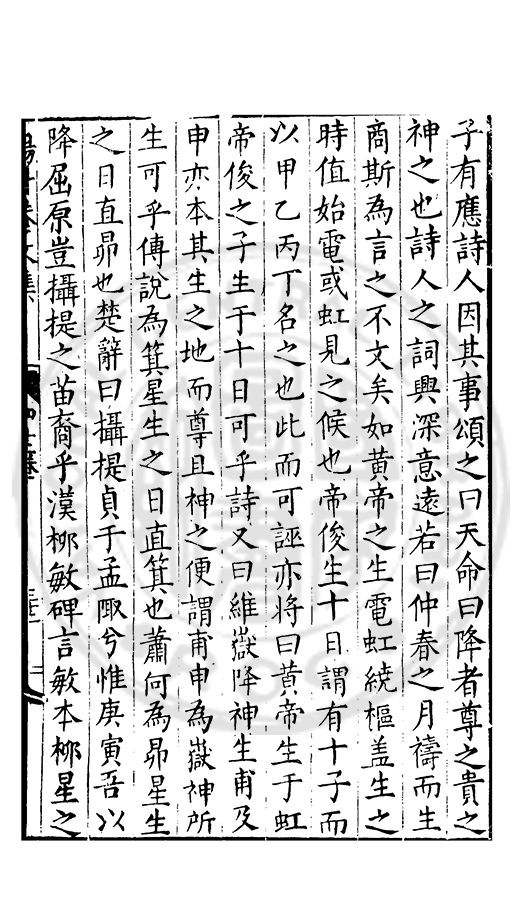 子有應詩人因其事頌之曰天命曰降者尊之貴之
神之也詩人之詞興深意遠若曰仲春之月禱而生
商斯為言之不文矣如黃帝之生電虹繞樞盖生之
時值始電或虹見之候也帝俊生十日謂有十子而
以甲乙丙丁名之也此而可誣亦將曰黃帝生于虹
帝俊之子生于十日可乎詩又曰維嶽降神生甫及
申亦本其生之地而尊且神之便謂甫申為嶽神所
生可乎傳說為箕星生之日直箕也蕭何為昴星生
之日直昴也楚辭曰攝提貞于孟陬兮惟庚寅吾以
降屈原豈攝提之苗裔乎漢栁敏碑言敏本栁星之